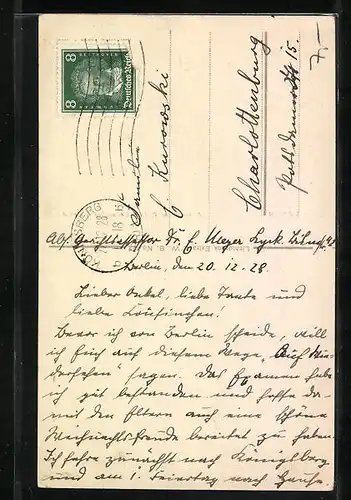 7,-
8 Deutsches Reich 8
KÖNIGSBERG
Familie
C Kurowski
Charlottenburg
15.
Abs. Gerichtsassessor Dr. E. Meyer Lyck
Berlin, den 20.12.28.
Lieber Onkel, liebe Tante und
liebe Cousinchen!
Bevor ich von Berlin scheide, will
ich Euch auf diesem Wege „Auf Wie-
dersehen" sagen. Das Examen habe
ich gut bestanden und hoffe da-
mit den Eltern auch eine schöne
Weihnachtsfreude bereitet zu haben.
Ich fahre zunächst nach Königsberg
und am 1. Feiertag nach Hause.